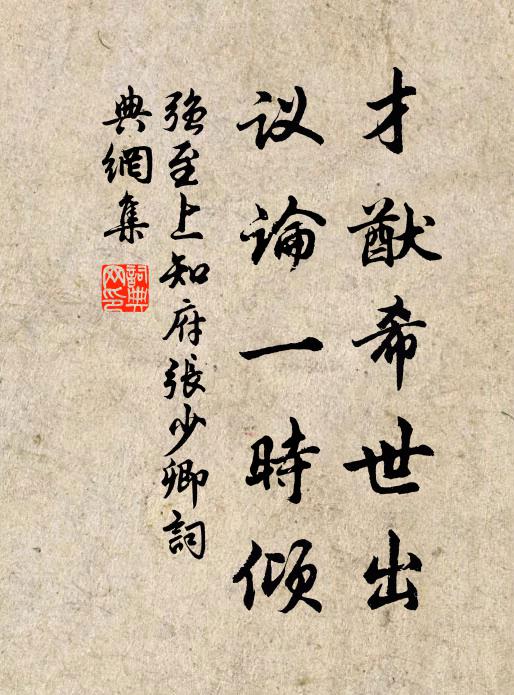 才猷希世出
议論一時傾
强至上知府張少卿詞
典網集
詞典網印